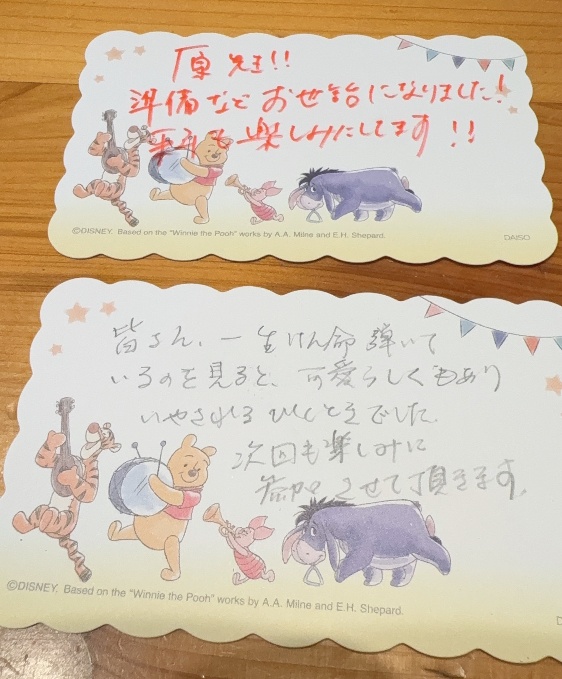 原先生!!
準備など お世話になりました!
来年も楽しみにしてます!!
©DISNEY. Based on the "Winnie the Pooh" works by A.A. Milne and E.H. Shepard.
DAISO
皆さん、一生けん命 弾いて
いるのを見ると、可愛らしくもあり
いやされるひとときでした。
次回も楽しみに
参加させて頂きます。
©DISNEY. Based on the "Winnie the Pooh" works by A.A. Milne and E.H. Shepard.